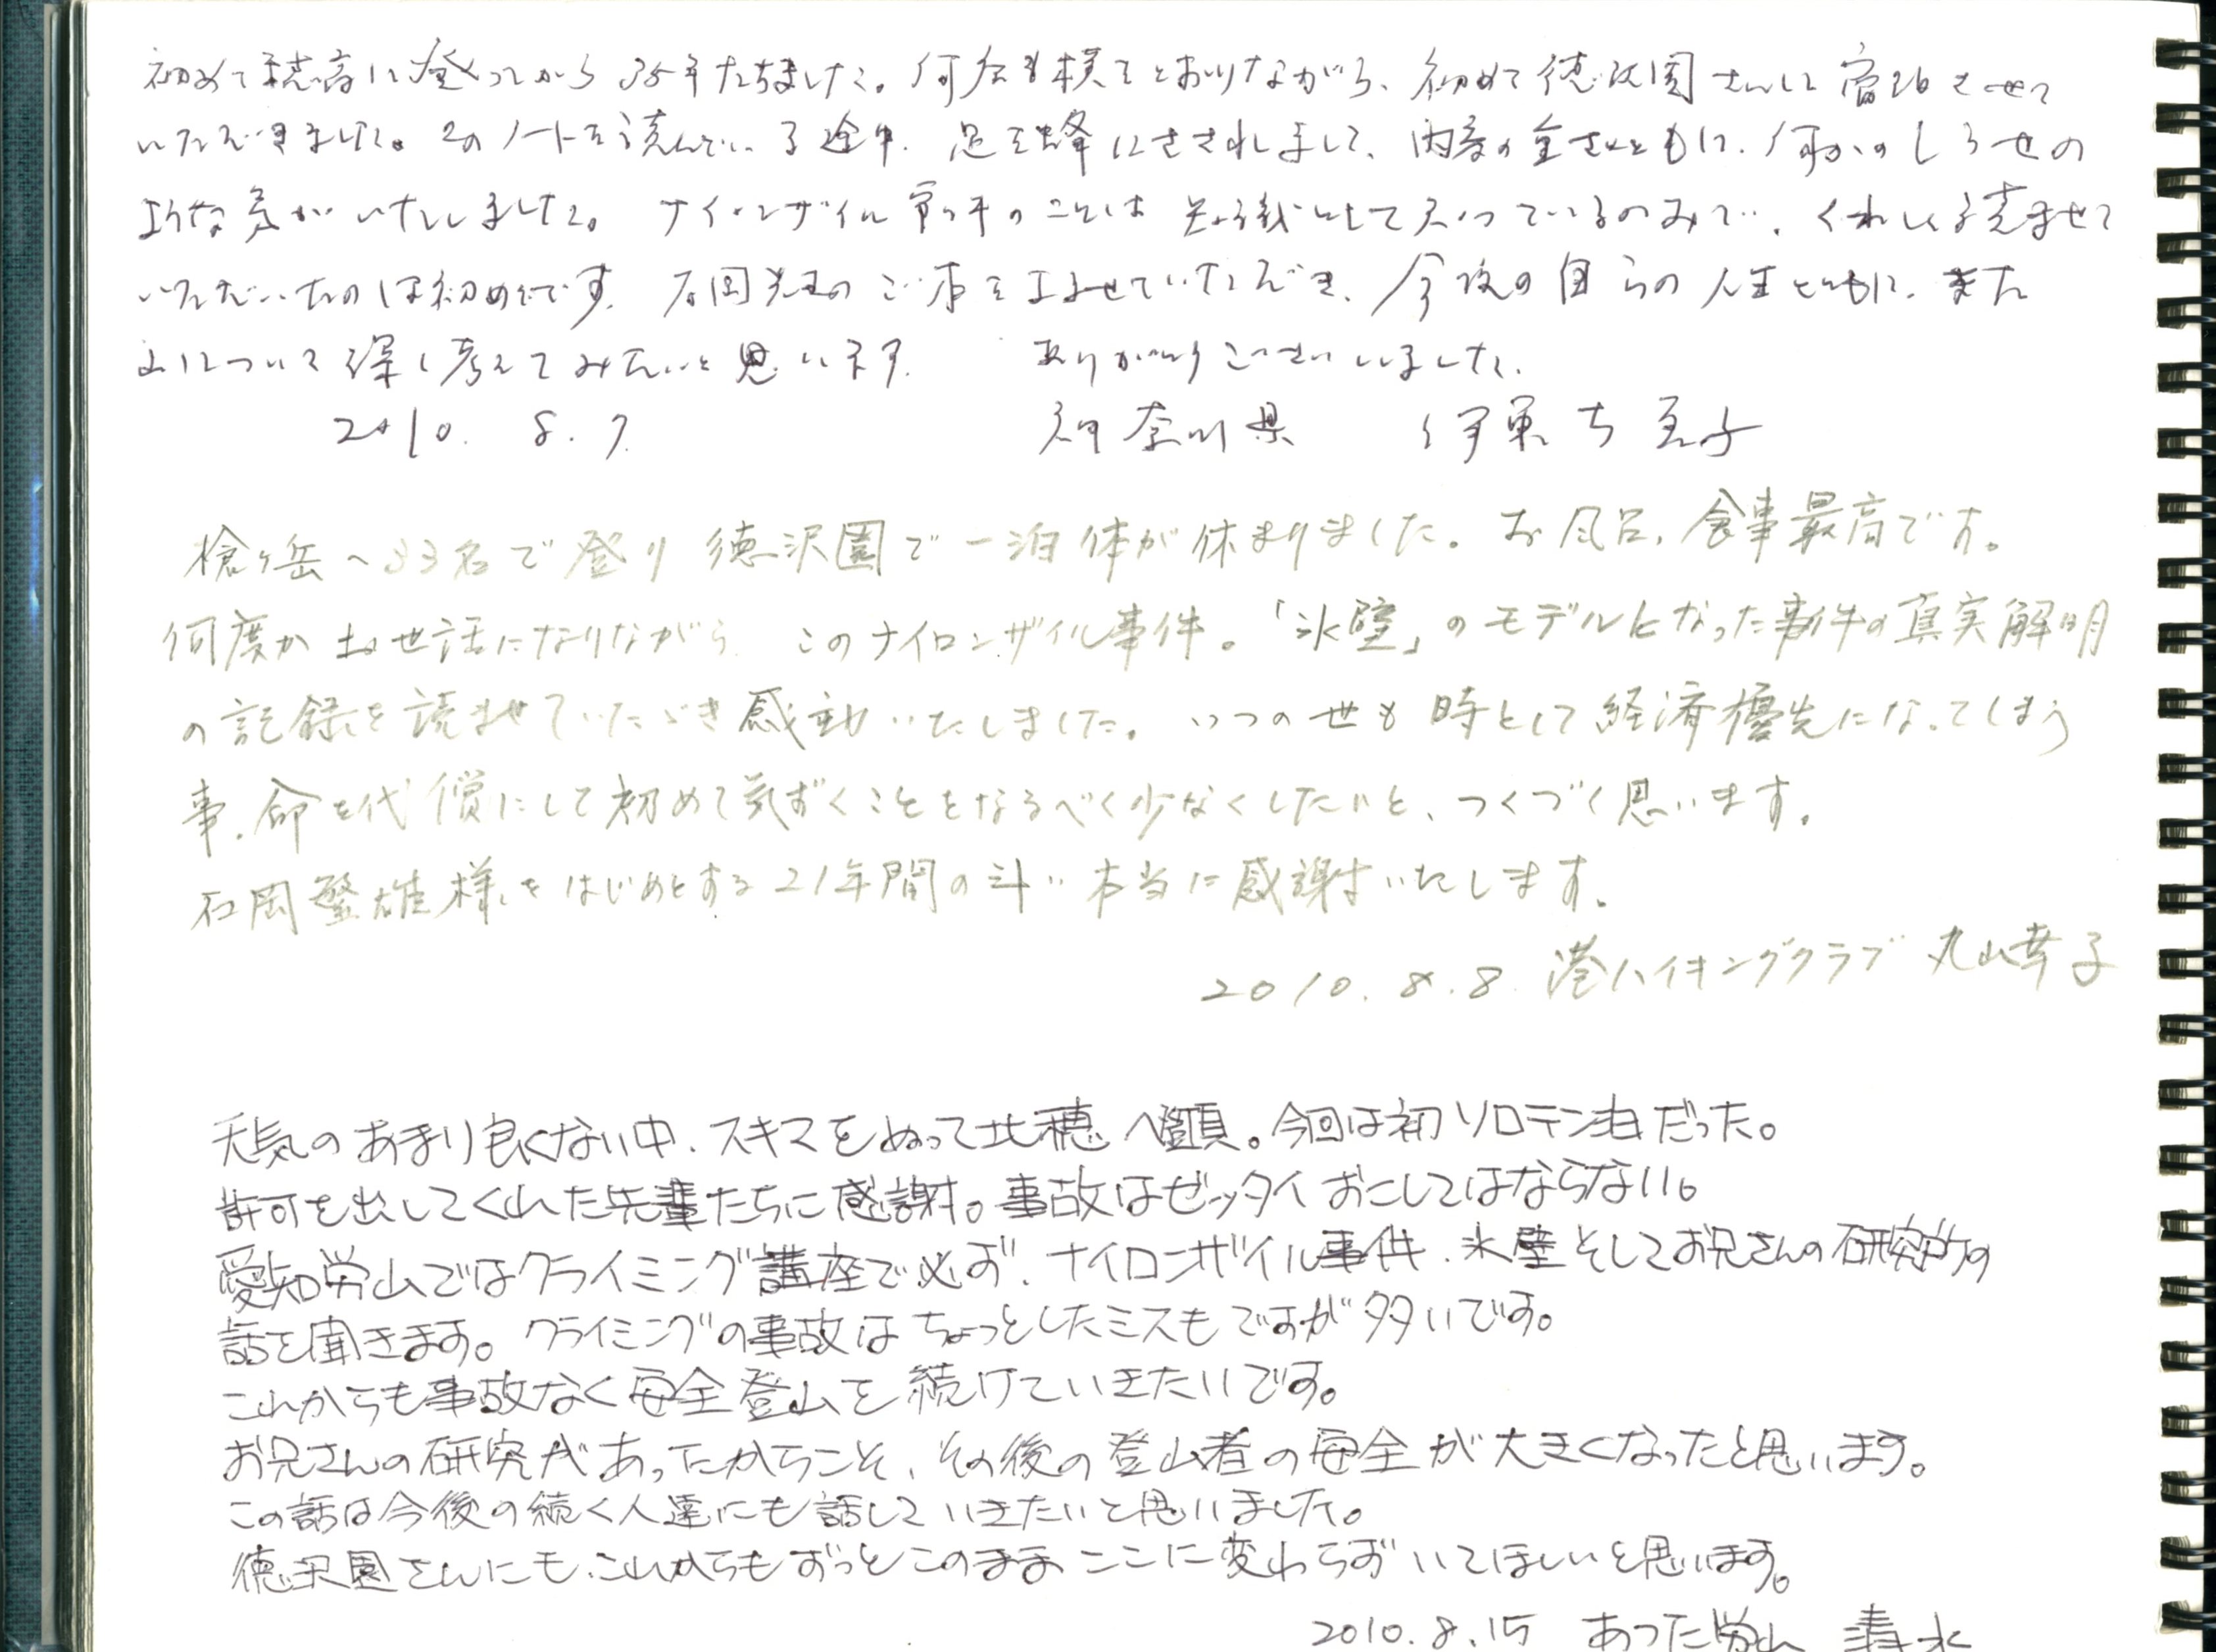 初めて穂高に登ってから35年たちました。何度も横をとおりながら、初めて徳沢園さんに宿泊させて
いただきました。このノートを読んでいる途中、足を蜂にさされまして、内容の重さとともに、何かのしらせの
ような気がいたしました。ナイロンザイル事件のことは知識として知っているのみで、くわしく読ませて
いただいたのは初めてです。石岡先生のご本をよませていただき、今後の自らの人生とともに、また
山について深く考えてみたいと思います。 ありがとうございました。
2010. 8. 7 神奈川県 伊東
槍ヶ岳へ33名で登り徳沢園で一泊体が休まりました。お風呂、食事最高です。
何度かお世話になりながら このナイロンザイル事件。「氷壁」のモデルとなった事件の真実解明
の記録を読ませていただき感動いたしました。いつの世も時として経済優先になってしまう
事、命を代償にして初めて気ずくことをなるべく少なくしたいと、つくづく思います。
石岡繁雄様をはじめとする21年間の斗い本当に感謝いたします。
2010. 8. 8 港ハイキングクラブ 丸山幸子
天気のあまり良くない中、スキマをぬって北穂へ登頂。今回は初ソロテン泊だった。
許可を出してくれた先輩たちに感謝。事故はゼッタイおこしてはならない。
愛知労山ではクライミング講座で必ず、ナイロンザイル事件、氷壁そしてお兄さんの研究所の
話を聞きます。クライミングの事故はちょっとしたミスもですが多いです。
これからも事故なく安全登山を続けていきたいです。
お兄さんの研究があったからこそ、その後の登山者の安全が大きくなったと思います。
この話は今後の続く人達にも話していきたいと思いました。
徳沢園さんにも、これからもずっとこのままここに変わらずいてほしいと思います。
2010. 8. 15 あつた労山 清水